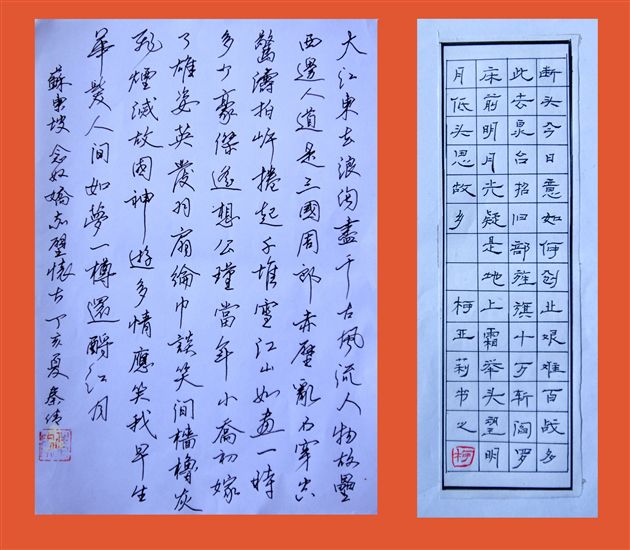 大江東去浪淘盡千古風流人物故壘
西邊人道是三國周郎赤壁亂石穿空
驚濤拍岸捲起千堆雪江山如畫一時
多少豪傑遙想公瑾當年小喬初嫁
了雄姿英發羽扇綸巾談笑间檣櫓灰
飛煙滅故國神遊多情應笑我早生
華髮人间如夢一樽還酹江月
蘇東坡念奴嬌赤壁懷古丁亥夏秦
断头今日意如何创业艰难百战多
此去泉台招旧部旌旗十万斩阎罗
床前明月光疑是地上霜举头望明
月低头思故乡 柯亚莉书之
柯